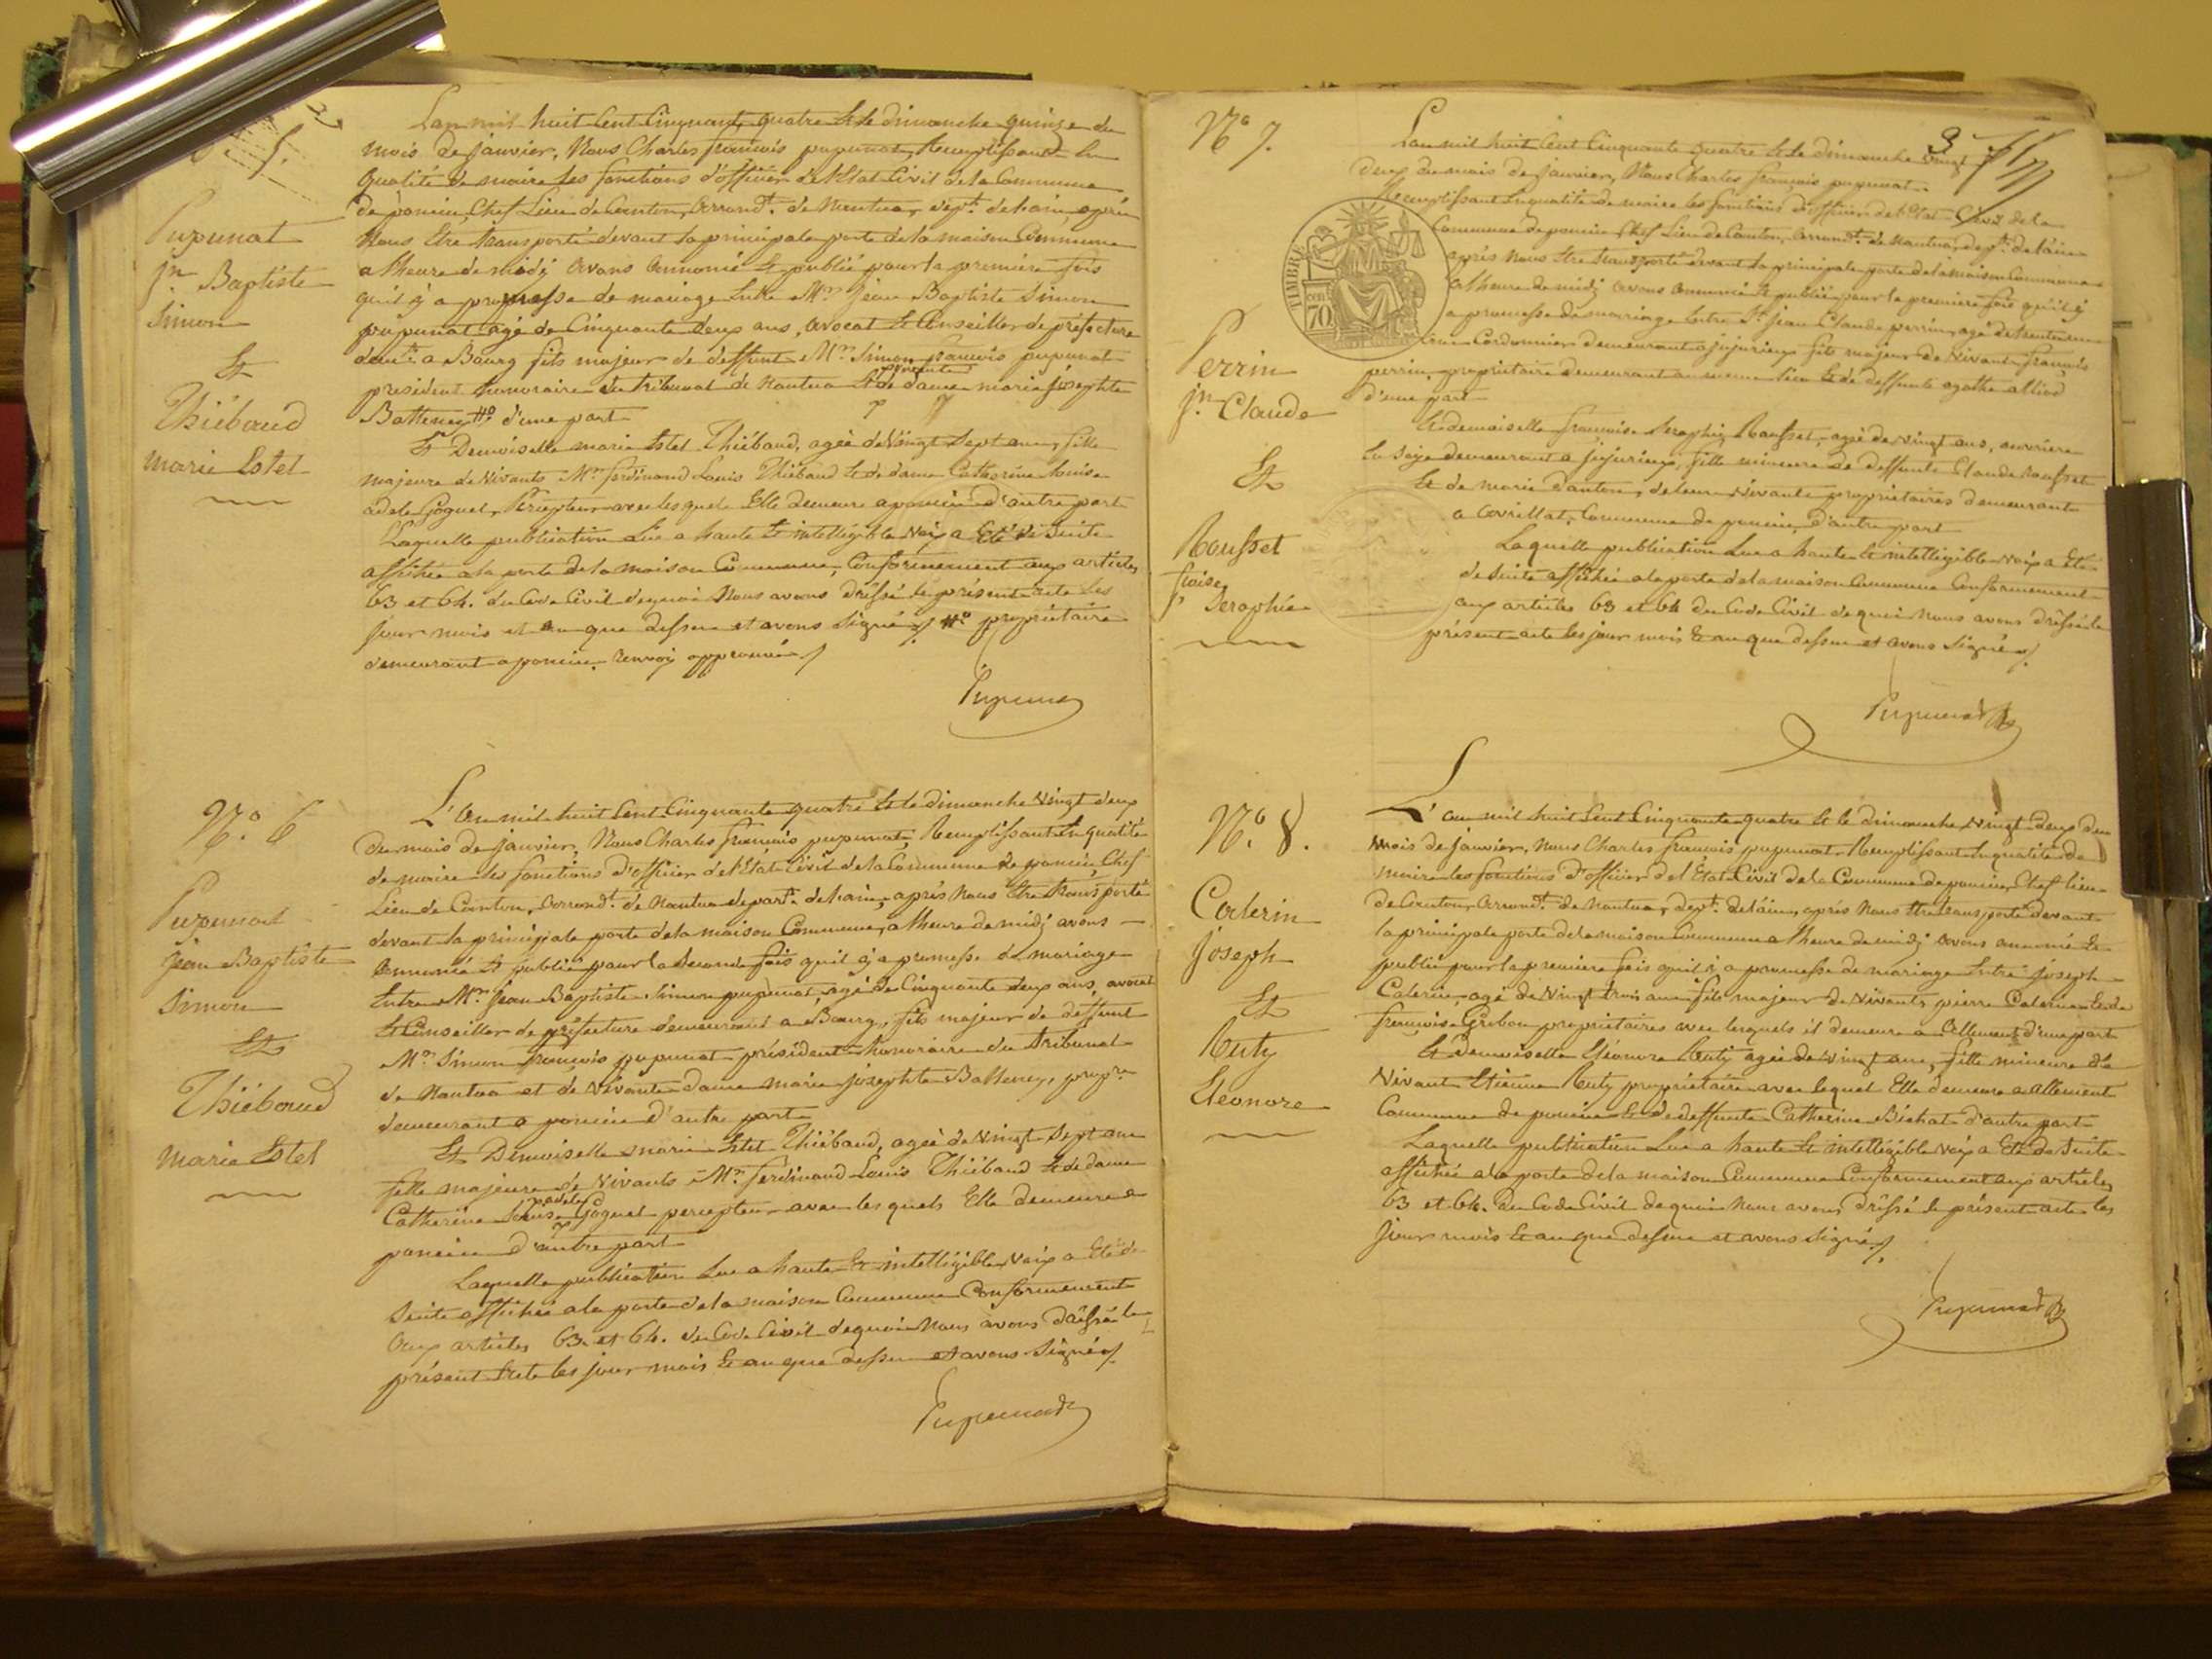 5.
Pupunat
jn Baptiste
Simon
Et
Thiébaud
marie Estel
Lan mil huit Cent Cinquante quatre Et le dimanche quinze du
mois de janvier, Nous Charles françois pupunat, Remplissant En
qualité de maire les fonctions d'officier de l'Etat Civil dela Commune
de poncin, Chef Lieu de Canton, arrondt. de Nantua, dept. delain, après
Nous Etre transporté devant la principale porte dela maison Commune
a lheure de midj avons annoncé Et publié pour la première fois
qu'il ÿ a promesse de mariage Entre Mr. jean Baptiste Simon
pupunat agé de Cinquante deux ans, avocat Et Conseiller de préfecture
demt. a Bourg fils majeur de deffunt Mr. Simon françois pupunat
president honoraire du tribunal de Nantua Et de vivante dame marie josephte
Batteney #o d'une part
Et Demoiselle marie Estel Thiébaud, agée de Vingt Sept ans, fille
majeure de Vivants Mr. ferdinand Louis Thiébaud Et de dame Catherine Louise
adele Goguet, Percepteur avec lesquels Elle demeure a poncin d'autre part
Laquelle publication Lue a haute Et intelligible Voix a Eté de Suite
affichée a la porte dela maison Commune, Conformement aux articles
63 et 64. du Code Civil dequoi Nous avons dréssé le présent acte les
jour mois et an que dessus et avons Signé ./. #o propriétaire
demeurant a poncin. renvoi approuvé ./
Pupunat
No. 6
Pupunat
jean Baptiste
Simon
Et
Thiébaud
marie Estel
L'an mil huit Cent Cinquante quatre Et le dimanche Vingt deux
du mois de janvier, Nous Charles françois pupunat, Remplissant En qualité
de maire les fonctions d'officier de l'Etat Civil dela Commune de poncin, Chef
Lieu de Canton, arrondt. de Nantua départt. delain, après Nous Etre transporté
devant la principale porte dela maison Commune, a lheure de midj avons
annoncé Et publié pour la Seconde fois quil ÿ a promesse de mariage
Entre Mr. jean Baptiste Simon pupunat, agé de Cinquante deux ans, avocat
Et Conseiller de préfecture demeurant a Bourg, fils majeur de deffunt
Mr. Simon françois pupunat président honoraire du tribunal
de Nantua et de Vivante dame marie josephte Batteney, propre
demeurant a poncin d'autre part
Et Demoiselle marie Estel Thiébaud, agée de Vingt Sept ans
fille majeure de Vivants Mr. ferdinand Louis Thiébaud Et de dame
Catherine Louise adele Goguet percepteur avec les quels Elle demeure a
poncin d'autre part
Laquelle publication Lue a haute Et intelligible Voix a Eté de
Suite affichée a la porte dela maison Commune Conformement
aux articles 63. et 64. du Code Civil dequoi Nous avons dréssé le
présent acte les jour mois Et an que dessus et avons Signé ./.
Pupunat
No 7.
3
Perrin
jn Claude
Et
Rousset
fçoise
Seraphie
TIMBRE
70
Lan mil huit Cent Cinquante quatre Et le dimanche Vingt
deux du mois de janvier, Nous Charles françois pupunat
Remplissant En qualité de maire les fonctions d'officier de l'Etat Civil de la
Commune de poncin Chef Lieu de Canton, arrondt. de Nantua, dept. de lain
après Nous Etre transporté devant la principale porte dela maison Commune
a lheure de midj avons annoncé Et publié pour la première fois qu'il ÿ
a promesse de marriage Entre Sr. jean Claude perrin, agé de trente un
ans Cordonnier demeurant a jujurieux fils majeur de Vivant françois
perrin, propriétaire demeurant au meme lieu Et de deffunte agathe alliod
d'une part
Et demoiselle françoise Seraphie Rousset, agée de Vingt ans, ouvrière
En Soÿe demeurant a jujurieux, fille mineure de deffunts Claude Rousset
Et de marie dantore, de leur Vivants propriétaires demeurant
a Covrillat, Commune de poncin d'autre part
Laquelle publication Lue a haute Et intelligible Voix a Eté
de Suite affichée ala porte dela maison Commune Conformement
aux articles 63 et 64 du Code Civil dequoi Nous avons dréssé le
présent acte les jour mois Et an que dessus et avons Signé ./.
Pupunat
No. 8.
Caterin
joseph
Et
Ruty
Eleonore
L'an mil huit Cent Cinquante quatre Et le dimanche Vingt deux du
mois de janvier, Nous Charles françois pupunat Remplissant En qualité de
maire les fonctions d'officier del'Etat Civil dela Commune de poncin, Chef lieu
de Canton, arrondt. de Nantua, dept. de lain, après Nous Etre transporté devant
la principale porte dela maison Commune a lheure de midj avons annoncé Et
publié pour la premiere fois quil ÿ a promesse de mariage Entre joseph
Caterin, agé de Vingt trois ans fils majeur de Vivants pierre Caterin Et de
françoise Gribou propriétaires avec lesquels il demeure a allement d'une part
Et demoiselle Eléonore Ruty agée de Vingt ans, fille mineure de
Vivant Etienne Ruty propriétaire avec lequel Elle demeure a allement
Commune de poncin Et de deffunte Catherine Bichat d'autre part
Laquelle publication Lue a haute Et intelligible Voix a Eté de Suite
affichée a la porte dela maison Commune Conformement aux articles
63 et 64. du Code Civil dequoi Nous avons dréssé le présent acte les
jour mois Et an que dessus et avons Signé ./.
Pupunat